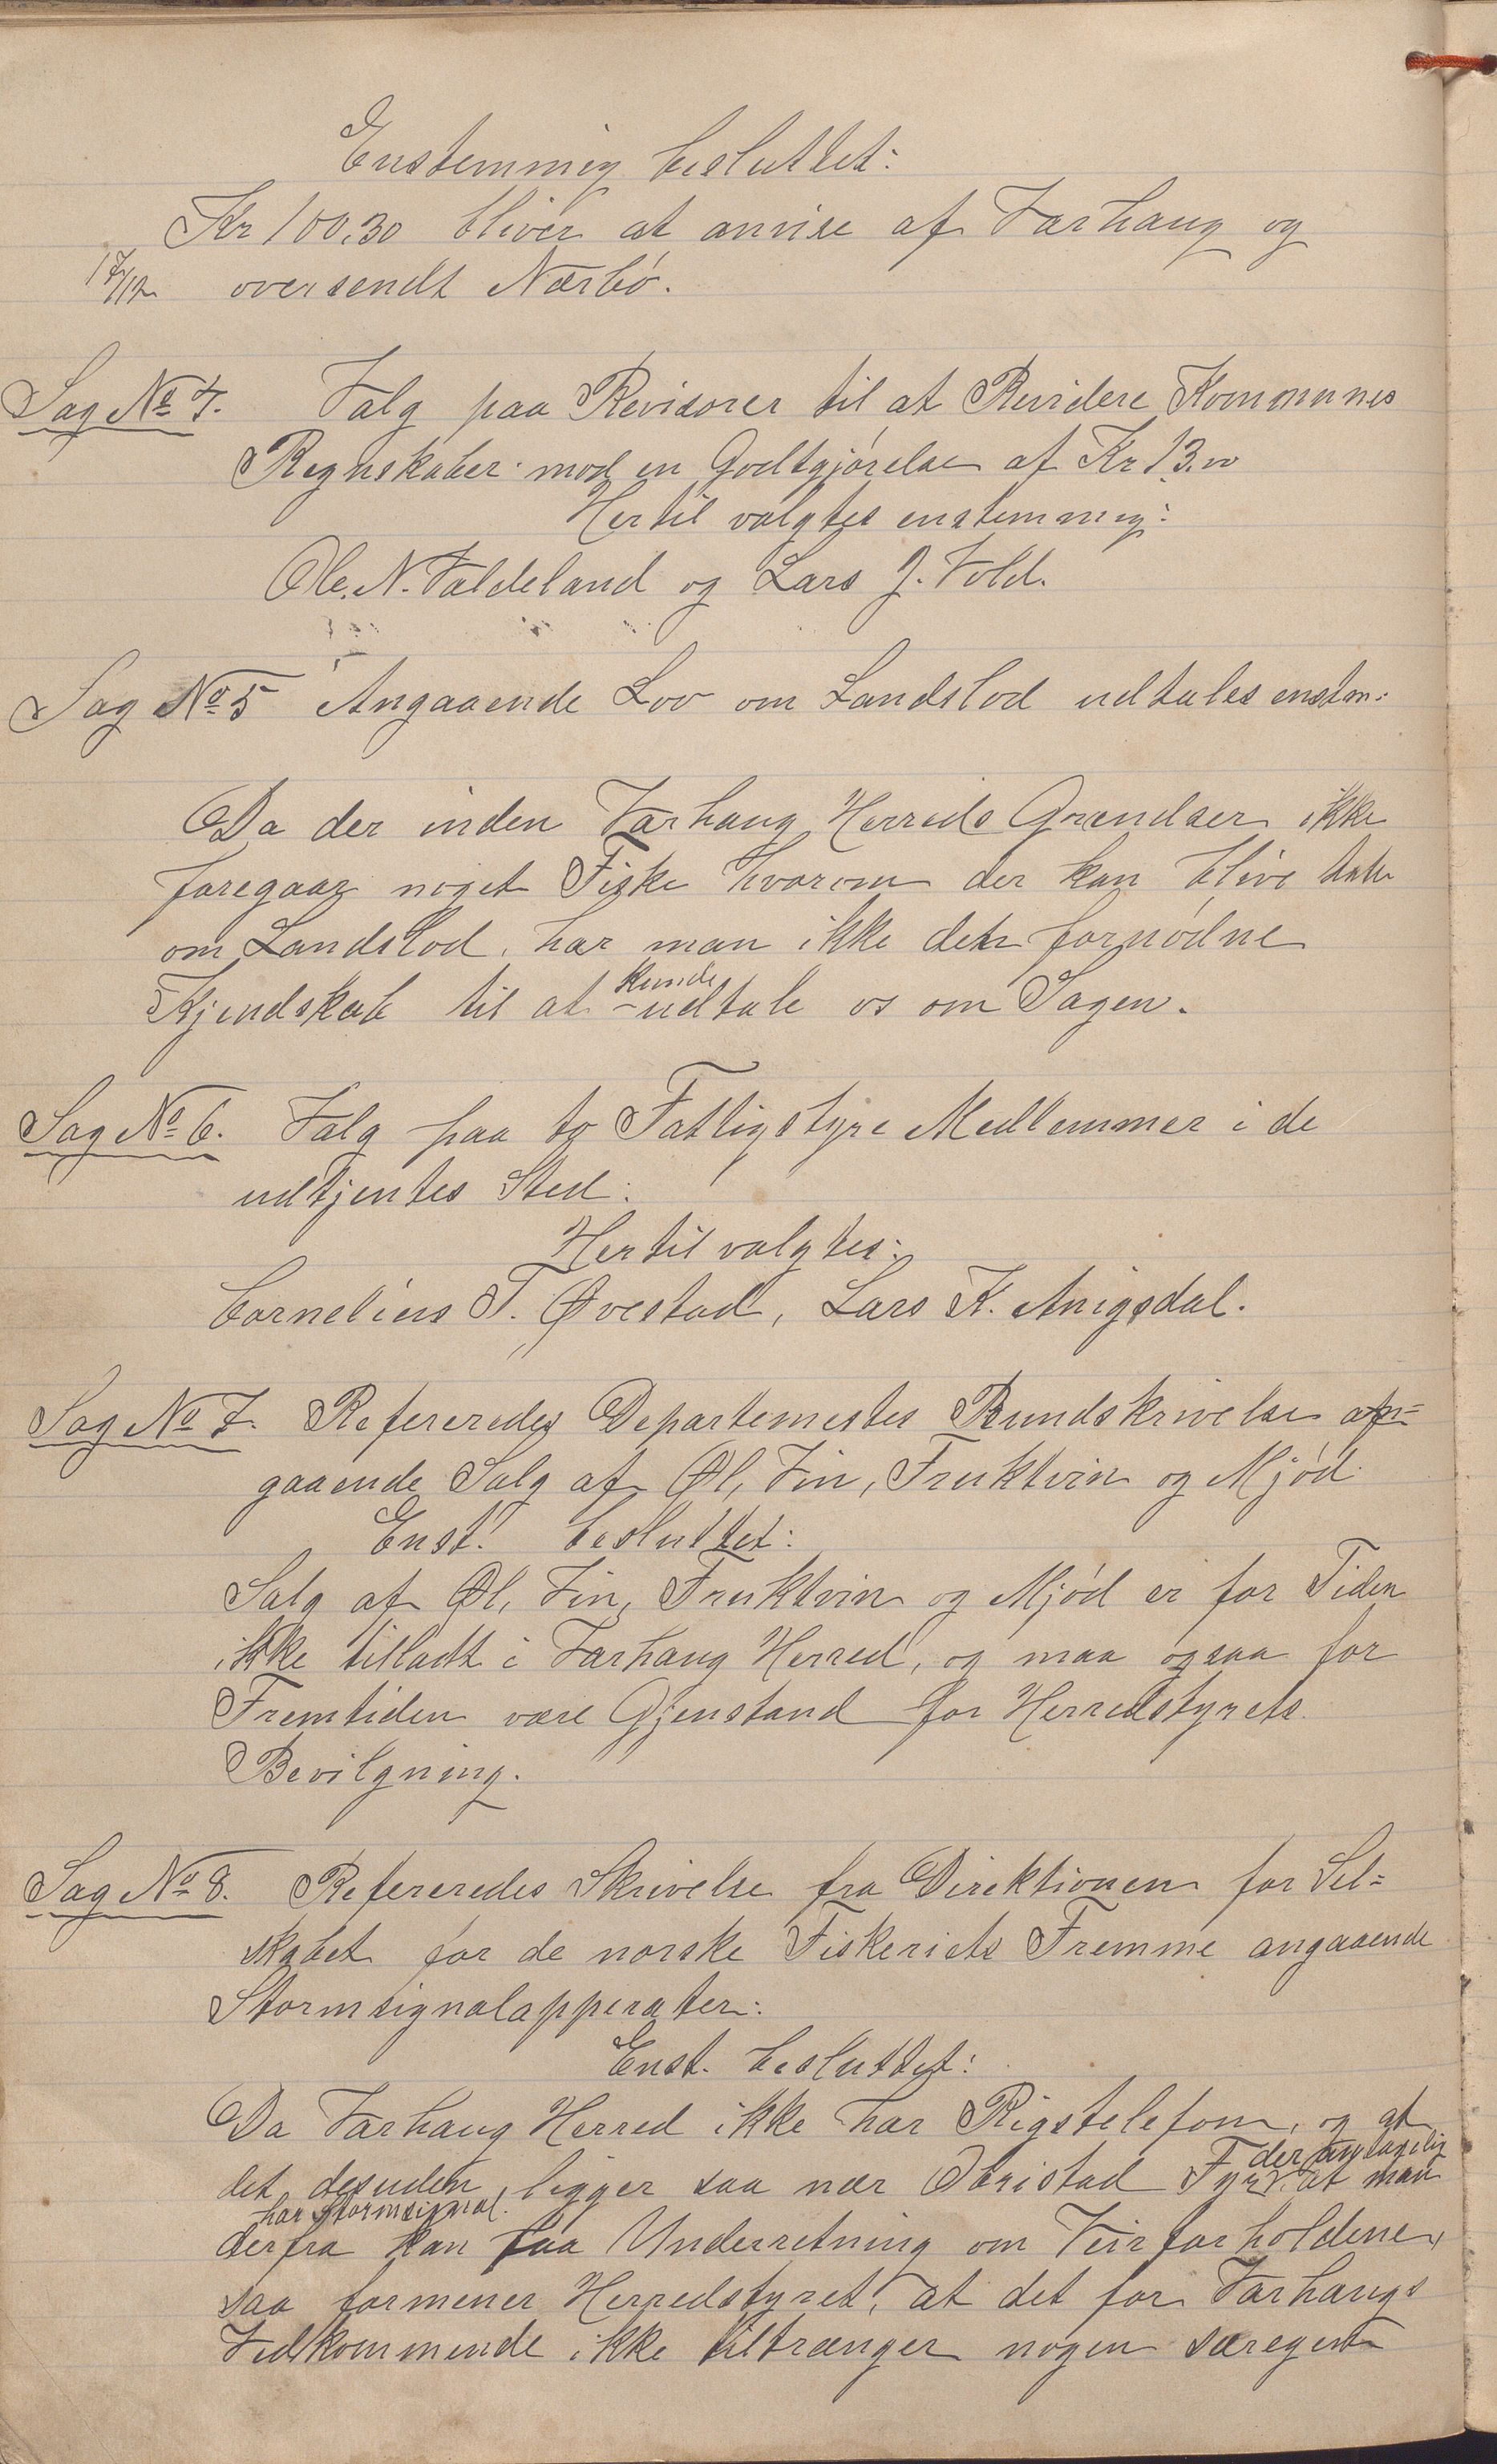 Enstemmig besluttet:
Kr 100.30 bliver at anvise af Varhaug og
17/12 oversendt Nærbö.
Sag No 4. Valg paa Revisorer til at Revidere Kommunes
Regnskaber mod en Godtgjörelse af Kr 13.00
Hertil valgtes enstemmig:
Ole. N. Valdeland og Lars J. Vold.
Sag No 5 Angaaende Lov om Landslod udtales enstm:
Da der inden Varhaug Herreds Grændser ikke
foregaar noget Fiske hvorom der kan blive tale
om Landslod, har man ikke den fornödne
Kjendskab til at kunde udtale os om Sagen.
Sag No 6. Valg paa to Fattigstyre Medlemmer i de
udtjentes Sted:
Hertil valgtes:
Cornelius T. Øvestad, Lars K. Anigsdal.
Sag No 7. Refereredes Departemestes Rundskrivelse an=
gaaende Salg af Øl, Vin, Fruktvin og Mjöd
Enst. besluttet:
Salg af Øl, Vin, Fruktvin og Mjöd er for Tiden
ikke tilladt i Varhaug Herred, og maa ogsaa for
Fremtiden være Gjenstand for Herredstyrets
Bevilgning.
Sag No 8. Refereredes Skrivelse fra Direktionen for Sel=
skabet for de norske Fiskeriets Fremme angaaende
Stormsignalapperater:
Enst. besluttet:
Da Varhaug Herred ikke har Rigstelefon, og at
det desuden ligger saa nær Obristad Fyr, der antagelig
har stormsignal. at man
derfra kan faa Underretning om Veirforholdene,
saa formener Herredstyret, at det for Varhaugs
Vedkommende ikke tiltrænger nogen særegen